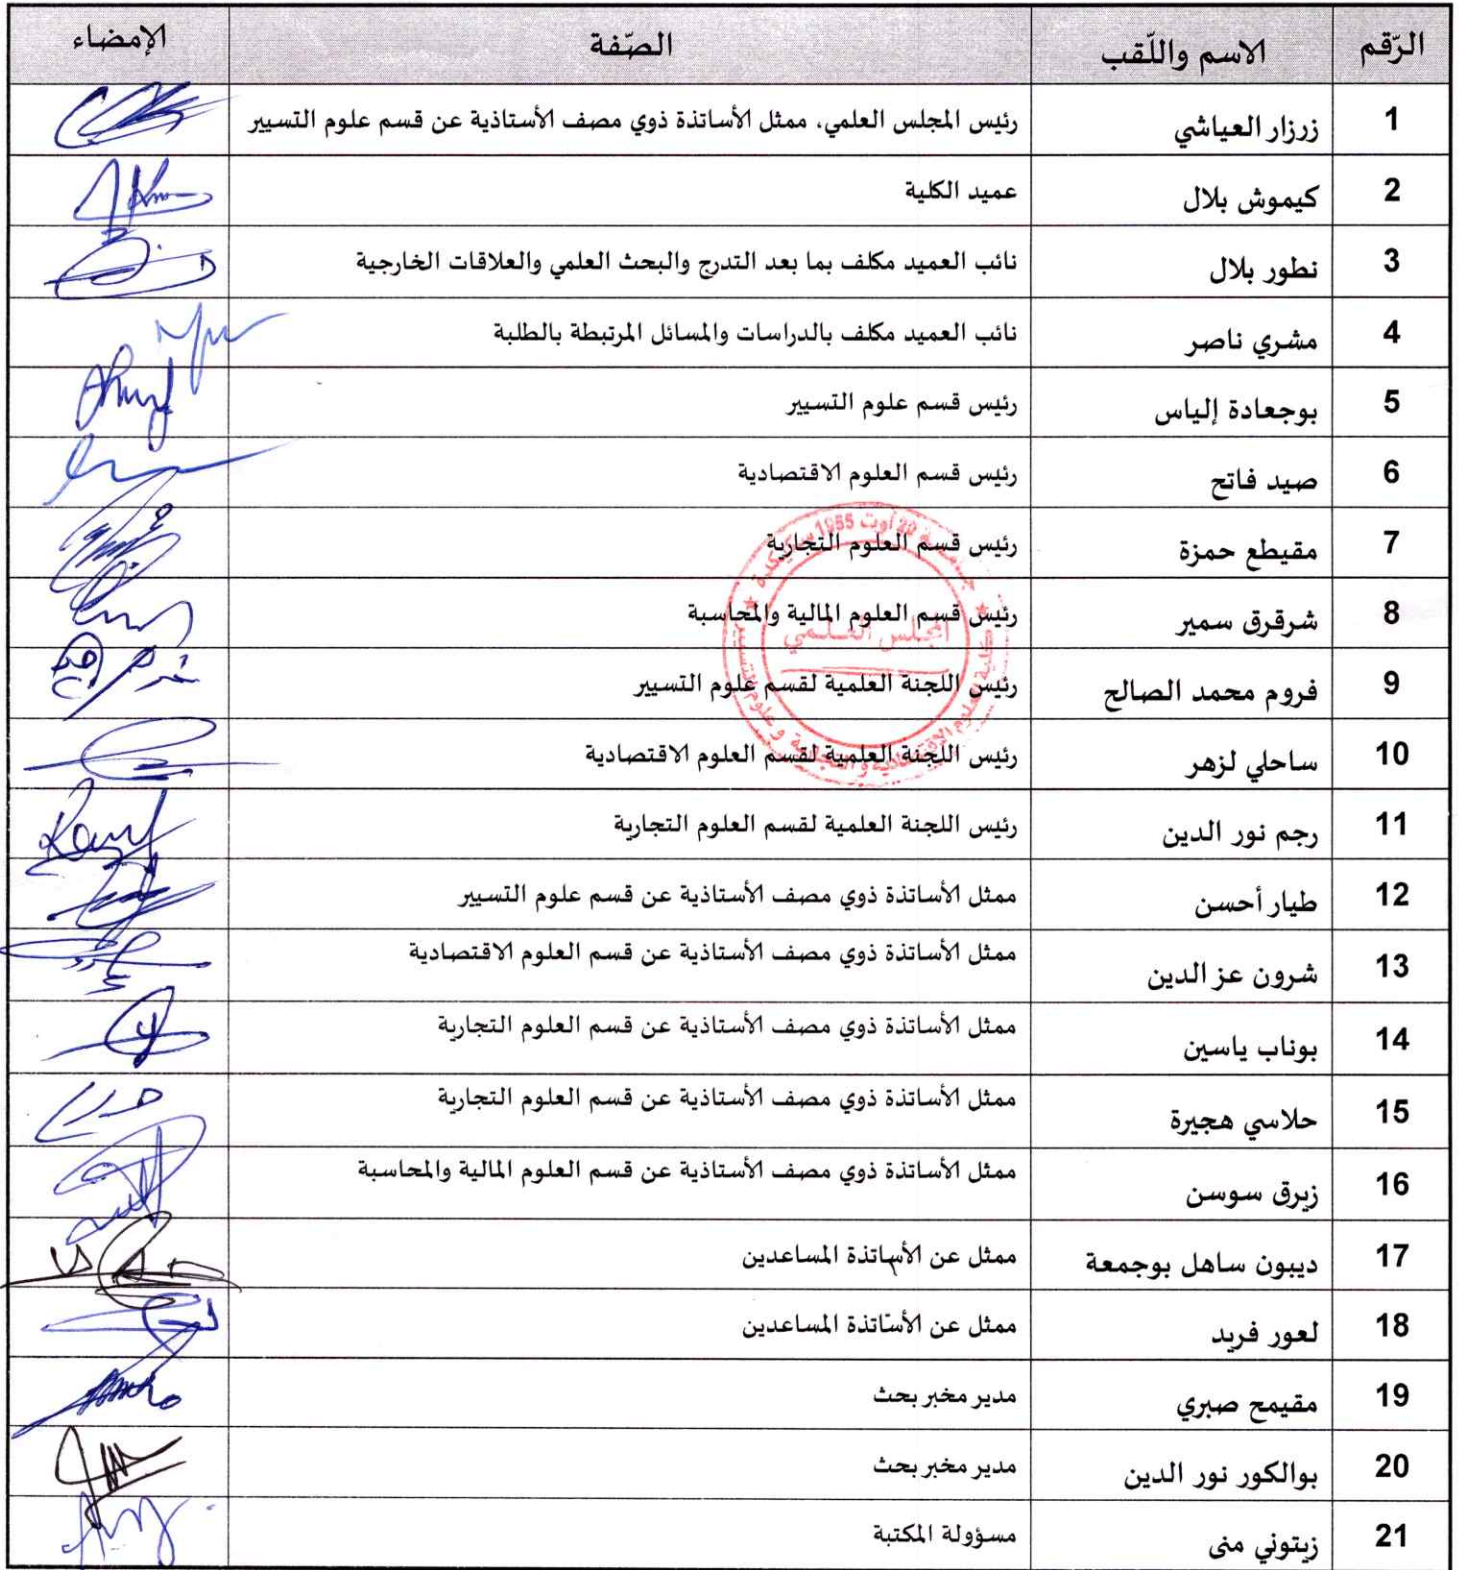 الرّقم الاسم واللّقب الصّفة الإمضاء
1 زرزار العياشي رئيس المجلس العلمي، ممثل الأساتذة ذوي مصف الأستاذية عن قسم علوم التسيير
2 كيموش بلال عميد الكلية
3 نطور بلال نائب العميد مكلف بما بعد التدرج والبحث العلمي والعلاقات الخارجية
4 مشري ناصر نائب العميد مكلف بالدراسات والمسائل المرتبطة بالطلبة
5 بوجعادة إلياس رئيس قسم علوم التسيير
6 صيد فاتح رئيس قسم العلوم الاقتصادية
7 مقيطع حمزة رئيس قسم العلوم التجارية
8 شرقرق سمير رئيس قسم العلوم المالية والمحاسبة
9 فروم محمد الصالح رئيس اللجنة العلمية لقسم علوم التسيير
10 ساحلي لزهر رئيس اللجنة العلمية لقسم العلوم الاقتصادية
11 رجم نور الدين رئيس اللجنة العلمية لقسم العلوم التجارية
12 طيار أحسن ممثل الأساتذة ذوي مصف الأستاذية عن قسم علوم التسيير
13 شرون عز الدين ممثل الأساتذة ذوي مصف الأستاذية عن قسم العلوم الاقتصادية
14 بوناب ياسين ممثل الأساتذة ذوي مصف الأستاذية عن قسم العلوم التجارية
15 حلاسي هجيرة ممثل الأساتذة ذوي مصف الأستاذية عن قسم العلوم التجارية
16 زيرق سوسن ممثل الأساتذة ذوي مصف الأستاذية عن قسم العلوم المالية والمحاسبة
17 ديبون ساهل بوجمعة ممثل عن الأساتذة المساعدين
18 لعور فريد ممثل عن الأساتذة المساعدين
19 مقيمح صبري مدير مخبر بحث
20 بوالكور نور الدين مدير مخبر بحث
21 زيتوني منى مسؤولة المكتبة
جامعة 20 أوت 1955 سكيكدة
المجلس العلمي
كلية العلوم الاقتصادية و التجارية و علوم التسيير